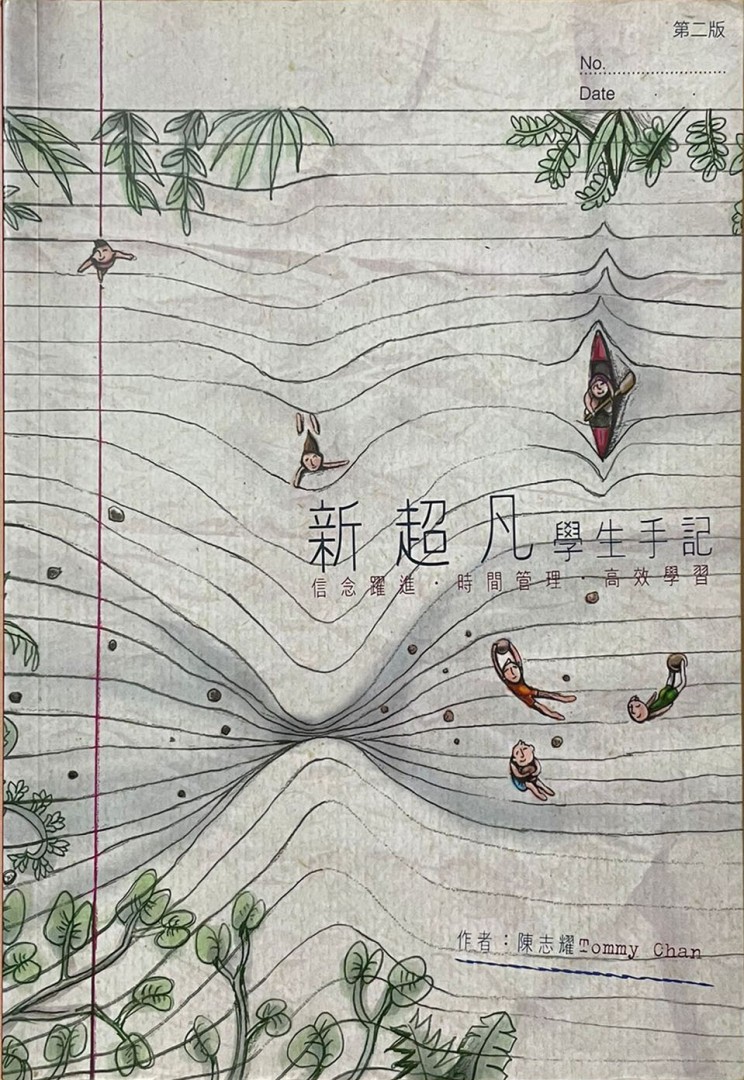 第二版
No.
Date
新超凡學生手記
信念躍進・時間管理・高效學習
作者：陳志耀Tommy Chan